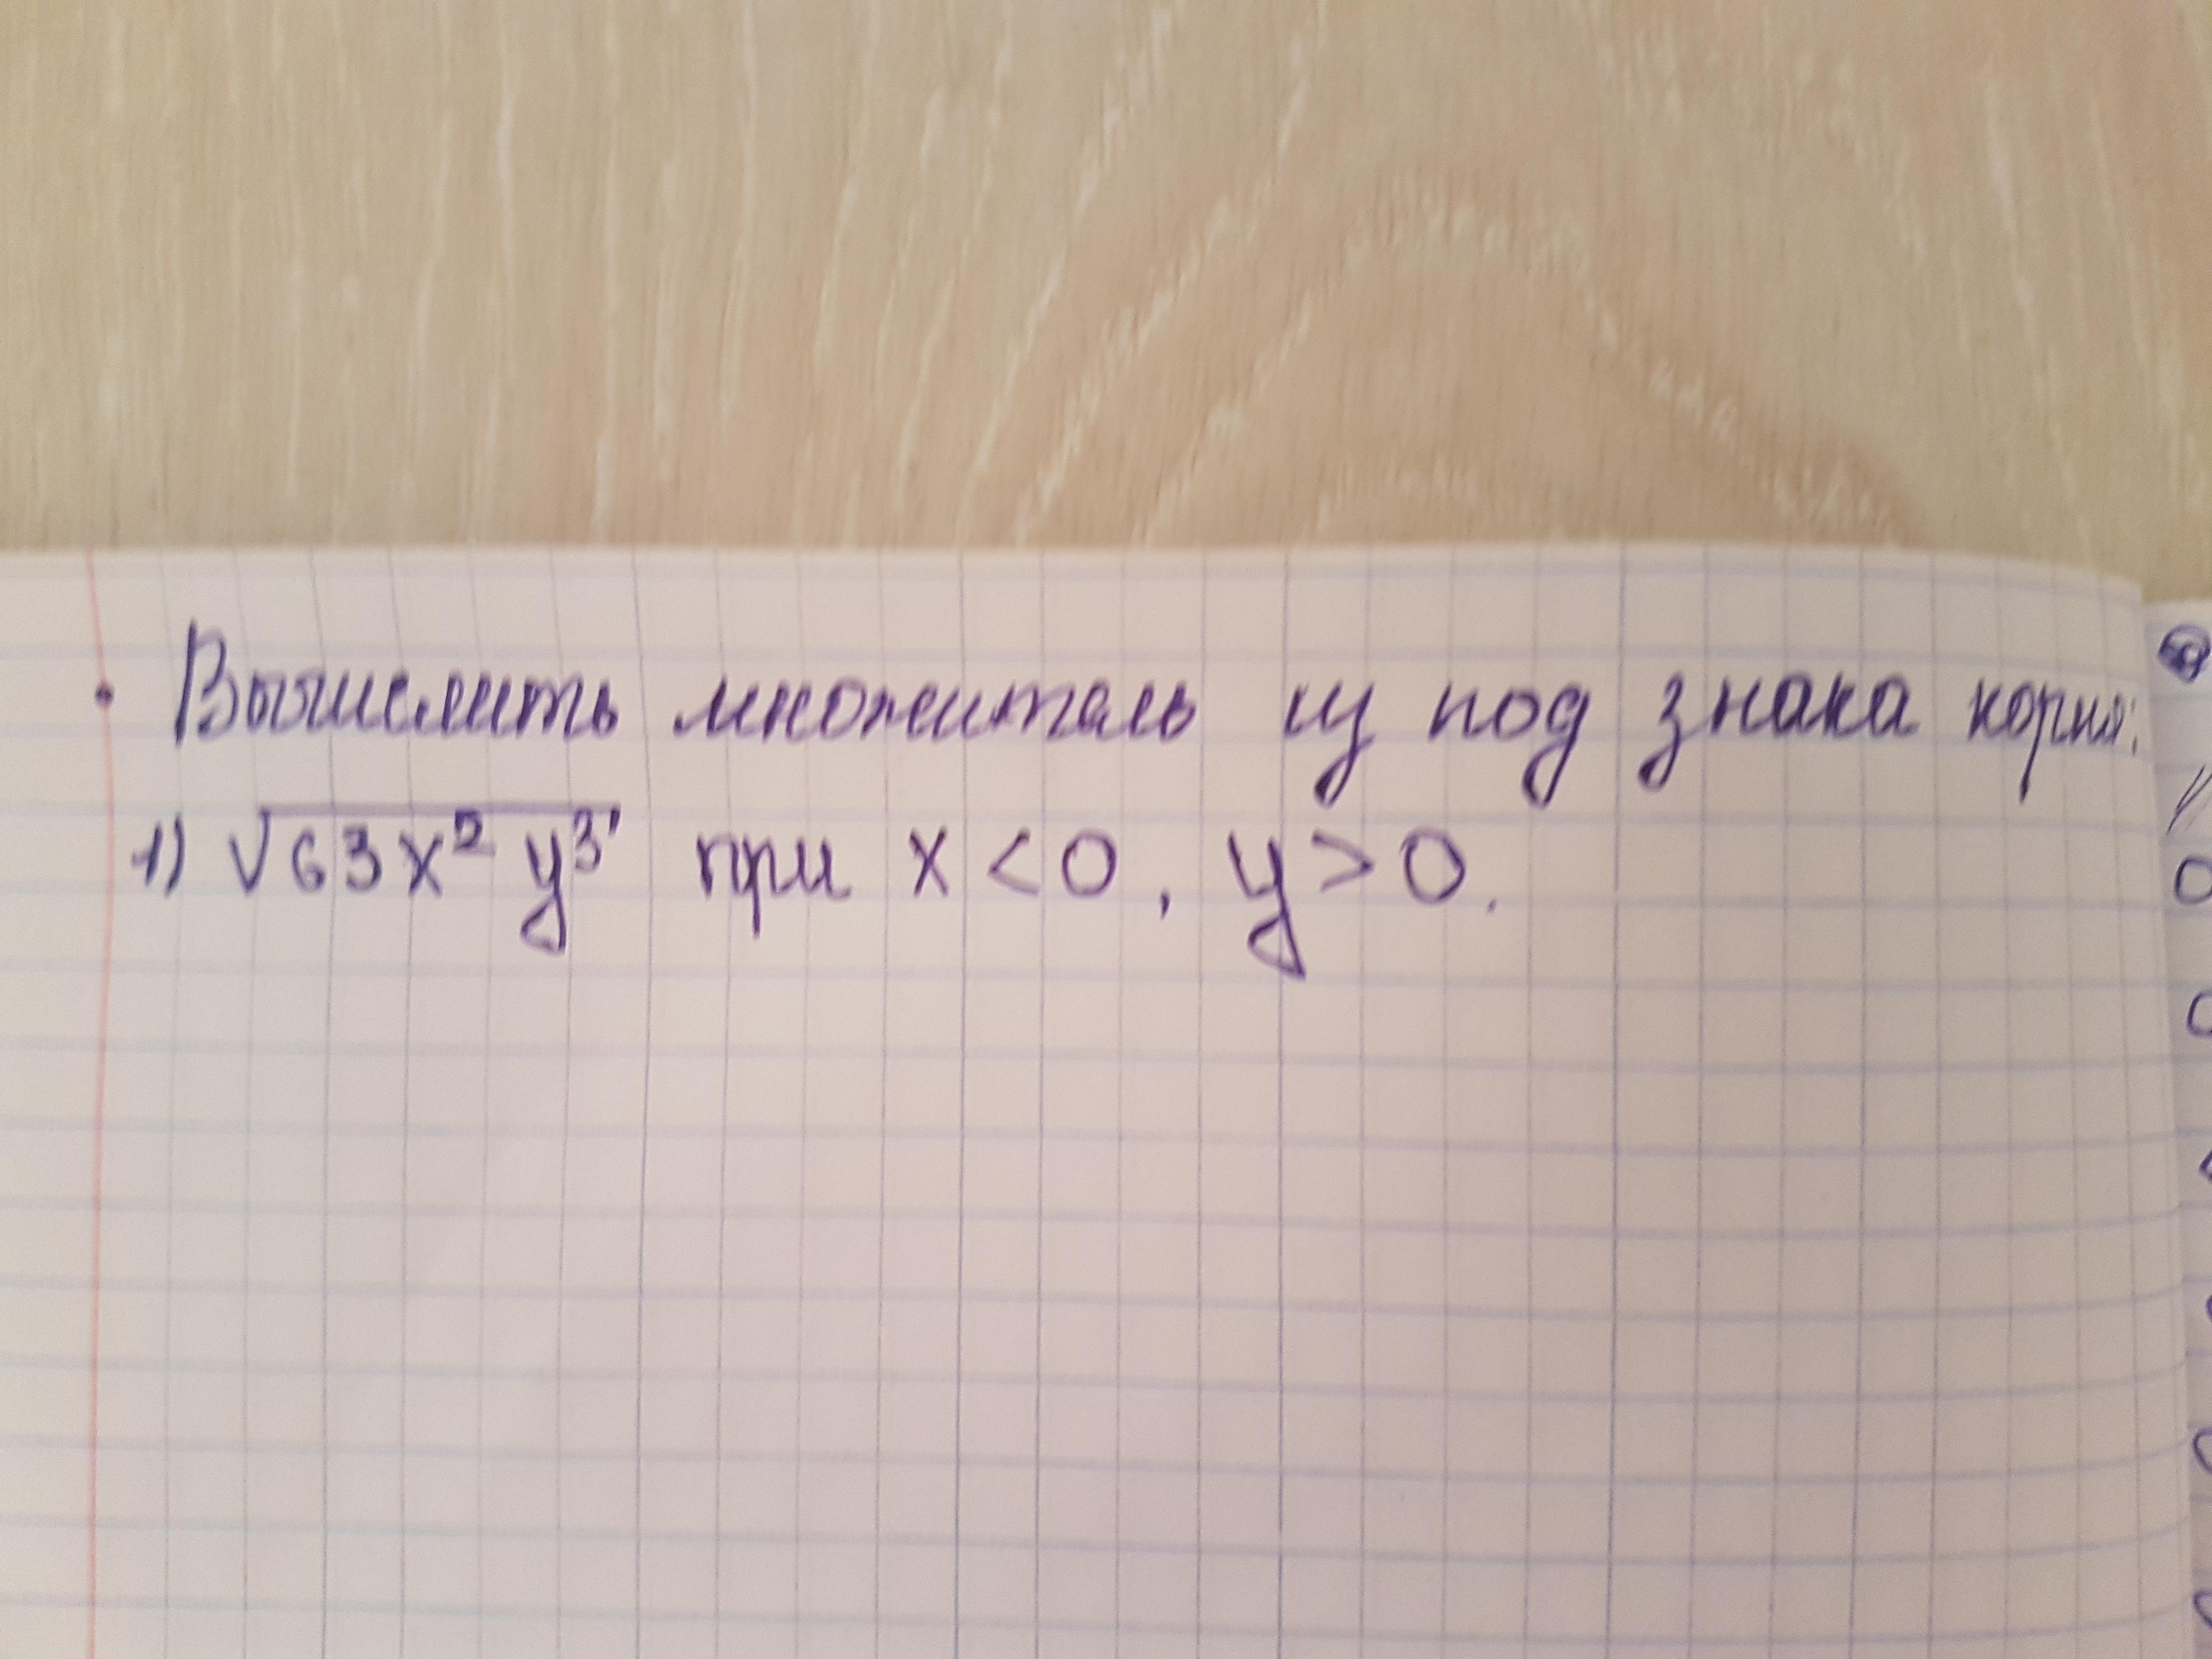 • Вычислить множитель из под знака корня:
1) √63x² y³ при x < 0, y > 0.